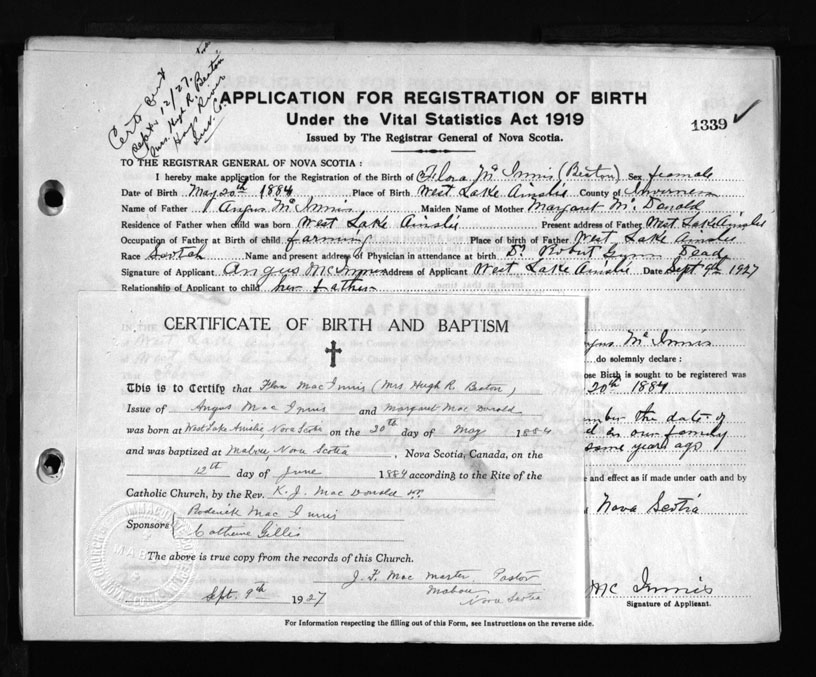 Certs Sent
Sept 12/27.
Mrs. Hugh R. Beaton
Hays River
Inv. Co.
APPLICATION FOR REGISTRATION OF BIRTH
Under the Vital Statistics Act 1919
Issued by The Registrar General of Nova Scotia.
1339
TO THE REGISTRAR GENERAL OF NOVA SCOTIA :
I hereby make application for the Registration of the Birth of Flora Mc Innis (Beaton) Sex female
Date of Birth May 20th 1884 Place of Birth West Lake Ainslie County of Inverness
Name of Father Angus Mc Innis Maiden Name of Mother Margaret Mc Donald
Residence of Father when child was born West Lake Ainslie Present address of Father West Lake Ainslie
Occupation of Father at Birth of child farming Place of birth of Father West Lake Ainslie
Race Scotch Name and present address of Physician in attendance at birth Dr Robert Dead
Signature of Applicant Angus McInnis Address of Applicant West Lake Ainslie Date Sept 9th 1927
Relationship of Applicant to child her father
AFFIDAVIT
CERTIFICATE OF BIRTH AND BAPTISM
Mc Innis
do solemnly declare :
Birth is sought to be registered was
This is to Certify that Flora Mac Innis (Mrs Hugh R. Beaton)
20th 1884
Issue of Angus Mac Innis and Margaret Mac Donald
the date of
was born at West Lake Ainslie, Nova Scotia on the 20th day of May 1884
in our family
and was baptized at Mabou, Nova Scotia, Nova Scotia, Canada, on the
some years ago
12th day of June 1884 according to the Rite of the
and effect as if made under oath and by
Catholic Church, by the Rev. K. J. Mac Donald P.P.
Nova Scotia
Sponsors Roderick Mac Innis
Catherine Gillis
The above is true copy from the records of this Church.
J. F. Mac Master, Pastor
Mabou
Nova Scotia
Sept. 9th 1927
Mc Innis
Signature of Applicant.
For Information respecting the filling out of this Form, see Instructions on the reverse side.